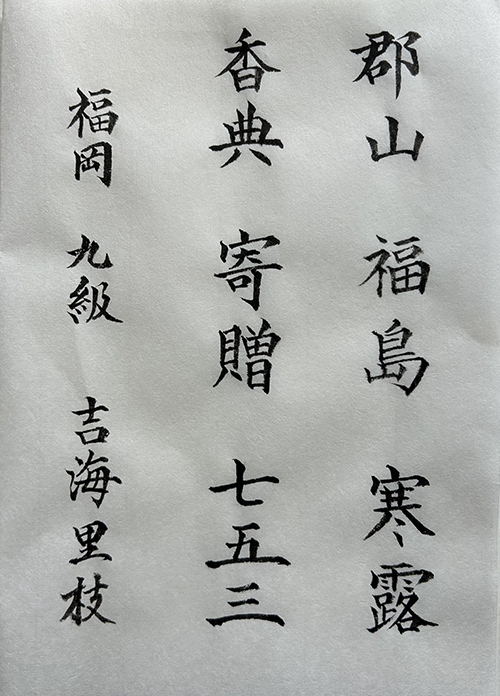 郡山 福島 寒露
香典 寄贈 七五三
福岡 九級 吉海里枝